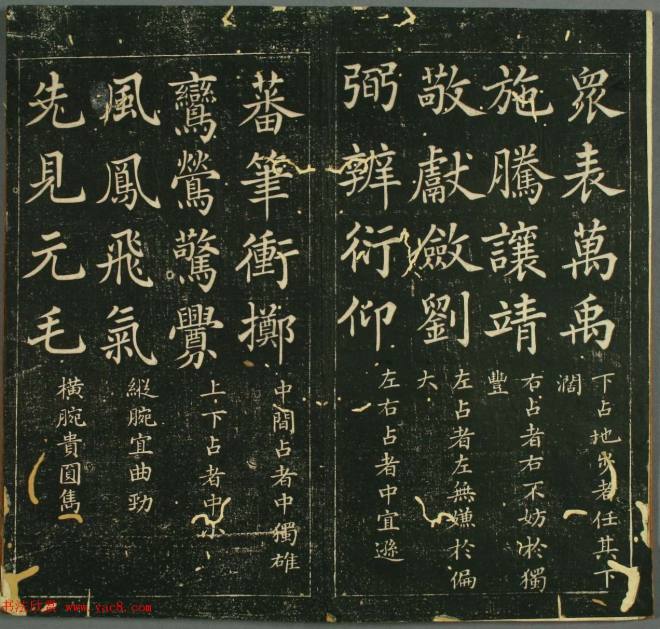 眾表萬禹 下占地步者任其下濶
施騰讓靖 右占者右不妨於獨豐
敬獻斂劉 左占者左無嫌於偏大
弼辨衍仰 左右占者中宜遜
蕃筆衝擲 中間占者中獨雄
鸞鶯驚釁 上下占者中小
風鳳飛氣 縱腕宜曲勁
先見元毛 橫腕貴圓雋
书法欣赏 www.yac8.com